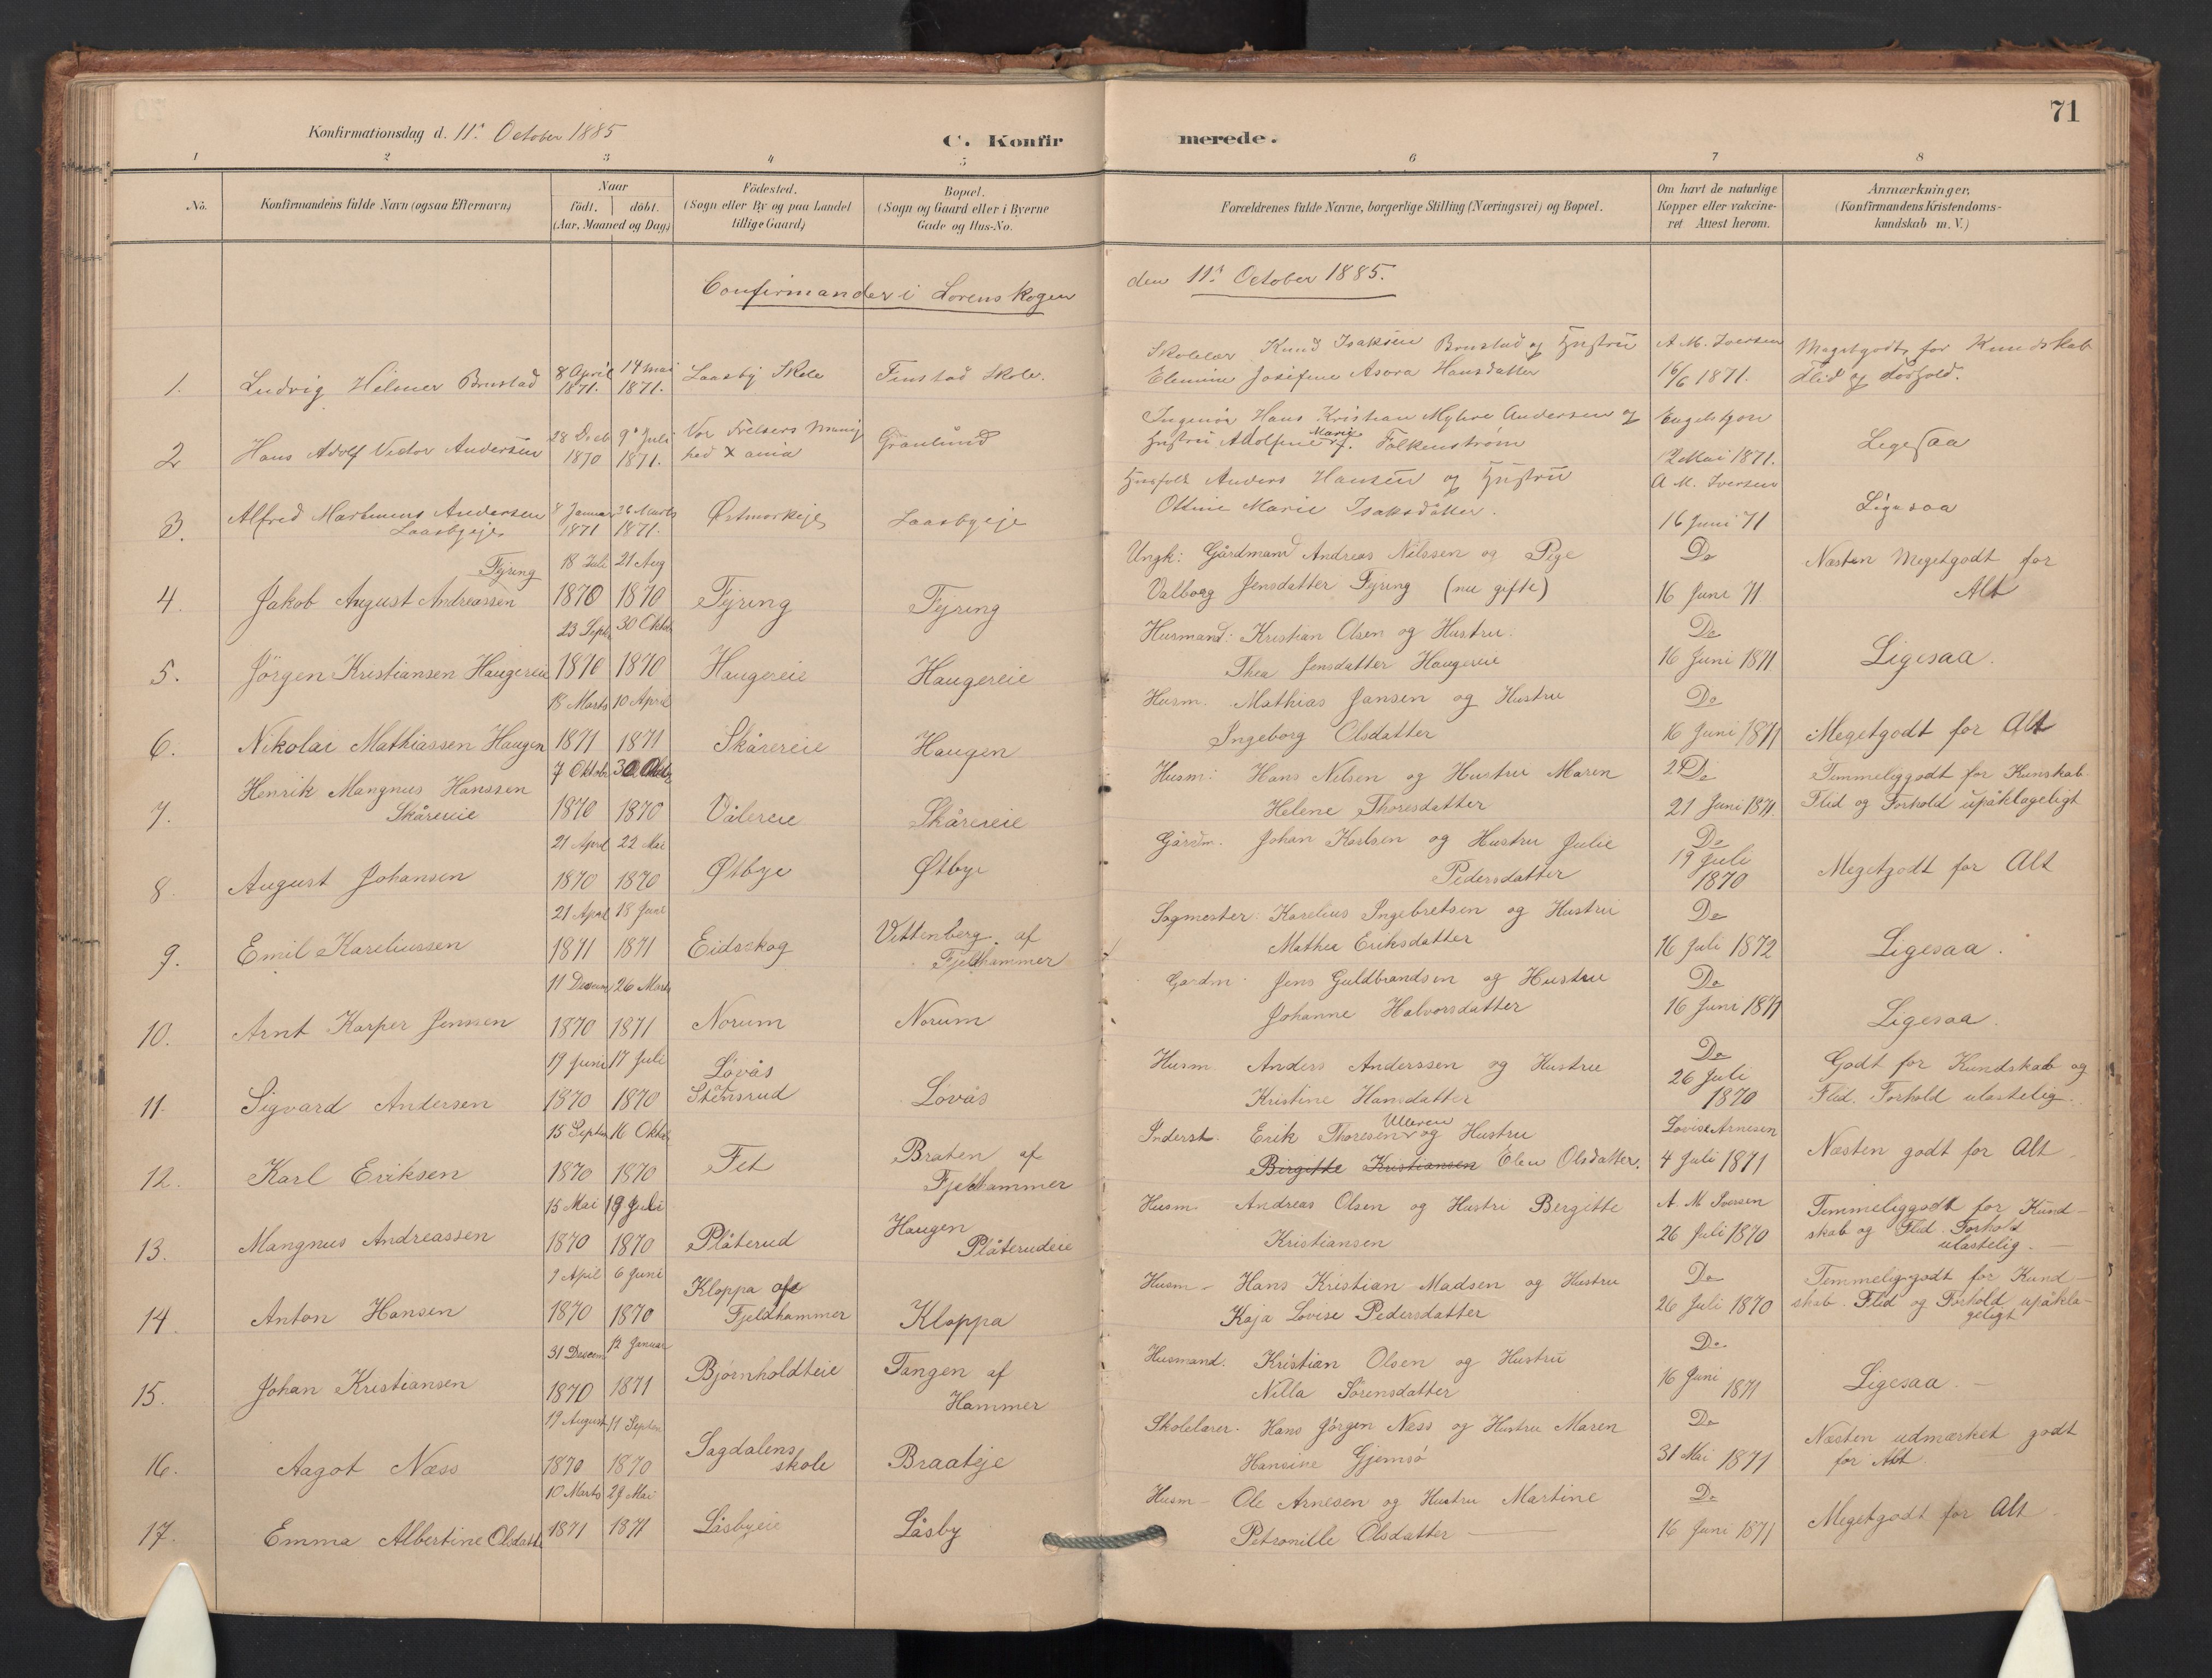 71
Konfirmationsdag d. 11te October 1885
C. Konfirmerede.
1 2 3 4 5 6 7 8
No.
Konfirmandens fulde Navn (ogsaa Efternavn)
Naar
födt. döbt.
(Aar, Maaned og Dag)
Födested.
(Sogn eller By og paa Landet
tillige Gaard)
Bopæl.
(Sogn og Gaard eller i Byerne
Gade og Hus-No.
Forældrenes fulde Navne, borgerlige Stilling (Næringsvei) og Bopæl.
Om havt de naturlige
Kopper eller vakcine-
ret Attest herom.
Anmærkninger.
(Konfirmandens Kristendoms-
kundskab m. V.)
Confirmander i Lorenskogen den 11te October 1885.
1. Ludvig Hilmer Brustad 8 April 1871. 14 Mai 1871. Laasby Skole Finstad Skole.
Skolelær Knud Isaksen Brustad og Hustru
Elemine Josefine Asora Hansdatter
A. M. Iversen
16/6 1871.
Megetgodt for Kundskab
Flid og Forhold.
2 Hans Adolf Victor Andersen 28 Decb 1870 9de Juli 1871. Vor Frelsers Menig
hed Xania Grönlund
Ingeniör Hans Kristian Myhre Andersen og
Hustru Adolfine Marie f. Falkenstrøm
Engelstjon
12 Mai 1871.
Ligesaa
3. Alfred Martinius Andersen
Laasbyeje 8 Januar 1871 26 Marts 1871. Østmorkeje Laasbyeje
Husfolk Anders Hansen og Hustru
Ottine Marie Isaksdatter.
A. M. Iversen
16 Juni 71
Ligesaa
4. Jakob August Andreassen
Fjring 18 Juli 1870 21 Aug 1870 Fjring Fjring
Ungk: Gårdmand Andreas Nilssen og Pige
Valborg Jensdatter Fjring (nu gifte)
Do
16 Juni 71
Næsten Megetgodt for
Alt
5. Jörgen Kristiansen Haugereie 23 Septb 1870 30 Oktob 1870 Haugereie Haugereie
Husmand: Kristian Olsen og Hustru:
Thea Jensdatter Haugereie
Do
16 Juni 1871
Ligesaa.
6. Nikolai Mathiassen Haugen 18 Marts 1871 10 April 1871 Skårereie Haugen
Husm. Mathias Jansen og Hustru
Ingeborg Olsdatter
Do
16 Juni 1871
Megetgodt for Alt
7. Henrik Mangnus Hanssen
Skårereie 7 Oktob 1870 30 Oktob 1870 Vålereie Skårereie
Husm: Hans Nilsen og Hustru Maren
Helene Thoresdatter
Do
21 Juni 1871
Temmeliggodt for Kunskab.
Flid og Forhold upåklageligt
8. August Johansen 21 April 1870 22 Mai 1870 Østbye Østbye
Gårdm. Johan Karlsen og Hustru Julie
Pedersdatter
Do
19 Juli
1870
Megetgodt for Alt
9. Emil Kareliussen 21 April 1871 18 Juni 1871 Eidsskog Vittenberg af
Fjeldhammer
Sagmester: Karelius Ingebretsen og Hustru
Mathea Eriksdatter
Do
16 Juli 1872
Ligesaa.
10. Arnt Kasper Jensen 11 Decem 1870 26 Marts 1871 Norum Norum
Gardm. Jens Guldbrandsen og Hustru
Johanne Halvorsdatter
Do
16 Juni 1871
Ligesaa.
11. Sigvard Andersen 19 Juni 1870 17 Juli 1870 Lövås
af
Stensrud Lövås
Husm. Anders Anderssen og Hustru
Kristine Hansdatter
Do
26 Juli
1870
Godt for Kundskab og
Flid. Forhold ulastelig.
12. Karl Eriksen 15 Septbr 1870 16 Oktb 1870 Fet Braten af
Fjeldhammer
Inderst. Erik Thoresen Ulleren og Hustru
Birgitte Kristiansen Elen Olsdatter.
Lovise Arnesen
4 Juli 1871
Næsten godt for Alt
13. Mangnus Andreassen 15 Mai 1870 19 Juli 1870 Plåterud Haugen
Plåterudeie
Husm. Andreas Olsen og Hustru Bergitte
Kristiansen
A. M. Iversen
26 Juli 1870
Temmeliggodt for Kund-
skab og Flid. Forhold
ulastelig.
14. Anton Hansen 9 April 1870 6 Juni 1870 Kloppa af
Fjeldhammer Kloppa
Husm- Hans Kristian Madsen og Hustru
Kaja Lovise Pedersdatter
Do
26 Juli 1870
Temmeliggodt for Kund-
skab. Flid og Forhold upåkla-
geligt
15. Johan Kristiansen 31 Decem 1870 12 Januar 1871 Bjørnholdteie Tangen af
Hammer
Husmand. Kristian Olsen og Hustru
Nilla Sörensdatter
Do.
16 Juni
1871
Ligesaa.
16. Aagot Næss 19 August 1870 11 Septbr 1870 Sagdalens
skole Braateje
Skolelærer. Hans Jörgen Næss og Hustru Maren
Hansine Gjemsö
Do
31 Mai 1871
Næsten udmærket godt
for Alt
17. Emma Albertine Olsdatt 10 Marts 1871 29 Mai 1871 Låsbyeie Låsby
Husm- Ole Arnesen og Hustru Martine
Petronille Olsdatter
Do
16 Juni 1871
Megetgodt for Alt